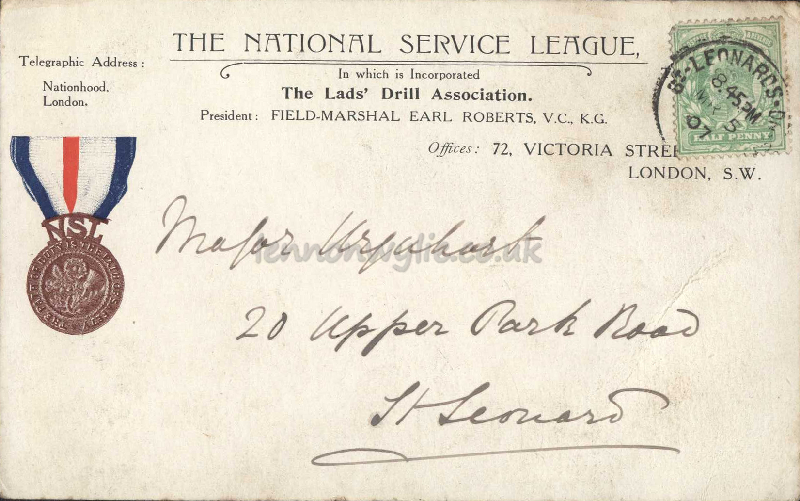 THE NATIONAL SERVICE LEAGUE,
In which is Incorporated
The Lads' Drill Association.
President: FIELD-MARSHAL EARL ROBERTS, V.C., K.G.
Offices: 72, VICTORIA STREE
LONDON, S.W.
Telegraphic Address:
Nationhood,
London.
NSL
ST-LEONARDS-O
8.45PM
MY 5
07
HALF PENNY
Major Urquhart
20 Upper Park Road
St Leonards
lennonwylie.co.uk